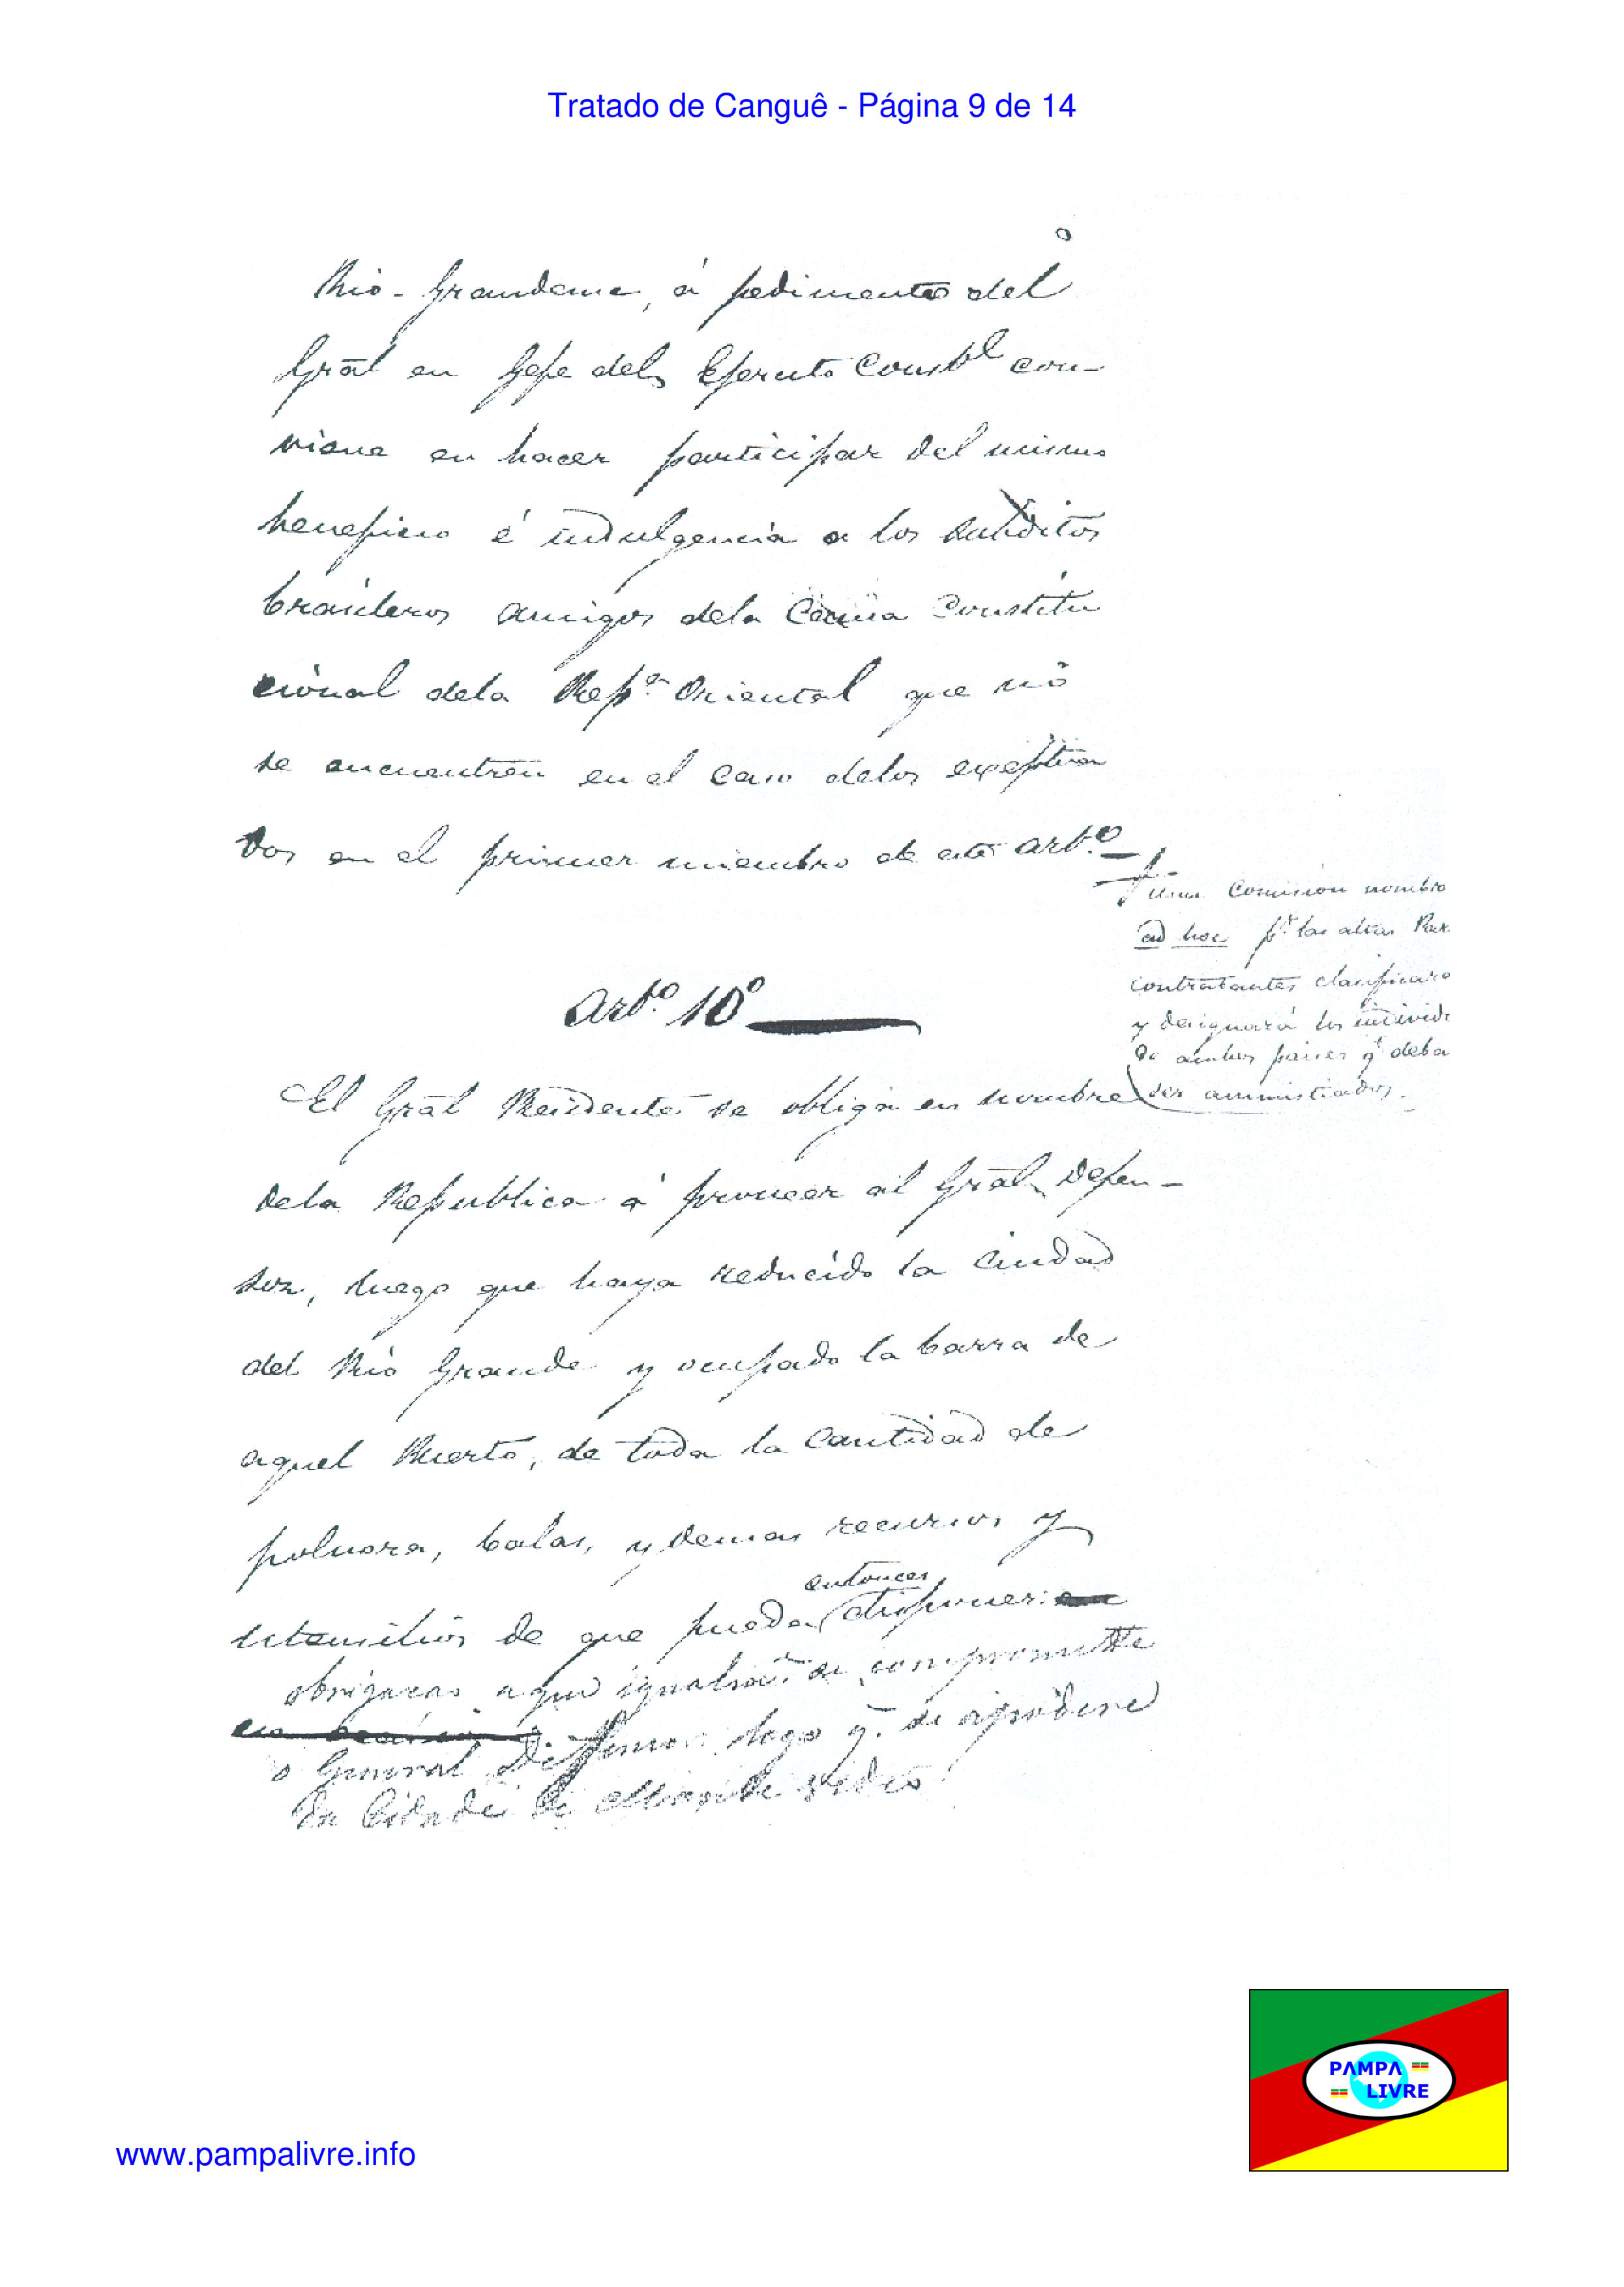 Tratado de Canguê - Página 9 de 14
Rio-Grandense, á pedimento del
Grāl en Gefe del Ejercito Constl con-
viene en hacer participar del mismo
beneficio é indulgencia a los subditos
brasileros amigos dela Causa Constitu
cional dela Repa. Oriental que nó
se encuentren en el caso delos exeptua
dos en el primer miembro de este arto.
una Comision nombr
ad hoc pr. las altas Par
contratantes clasificara
y designará los individ
de ambos paises qe deba
ser amnistiados.
Arto. 10o
El Grāl Presidente se obliga en nombre
dela Republica á proveer al Grāl Defen-
sor, luego que haya reducido la ciudad
del Rio Grande y ocupado la barra de
aquel Puerto, de toda la cantidad de
polvora, balas, y demas recursos y
entonces
utensilios de que pueda disponer:
obrigacao a que igualmte. se compromette
o General Deffensor logo q. se apodere
da Cidade de Montevideo
www.pampalivre.info
PAMPA
LIVRE